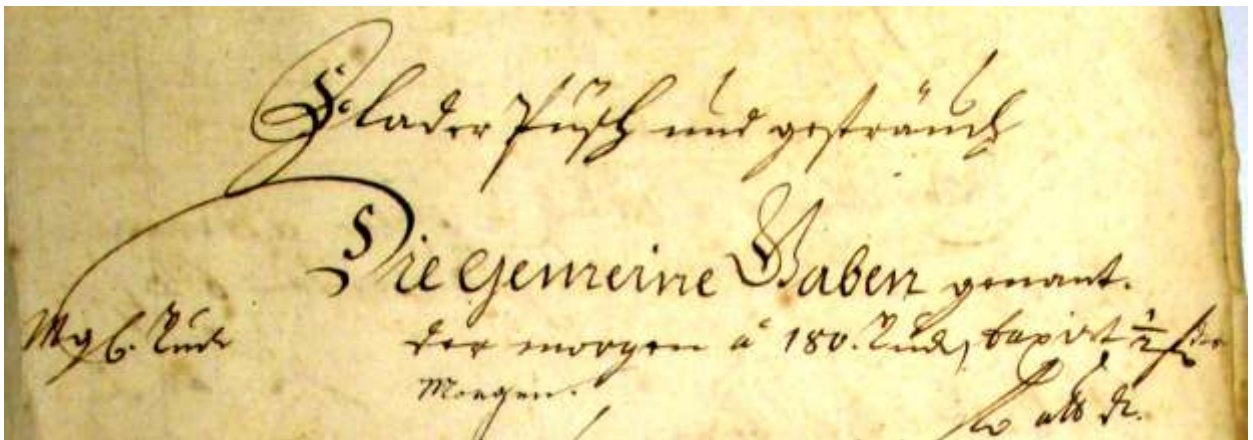 Schlader Püsch und gesträuch
Die Gemeine Gaben genant.
Mg. Rud
der morgen a 180. Rud, taxirt 1/2
Morgen.